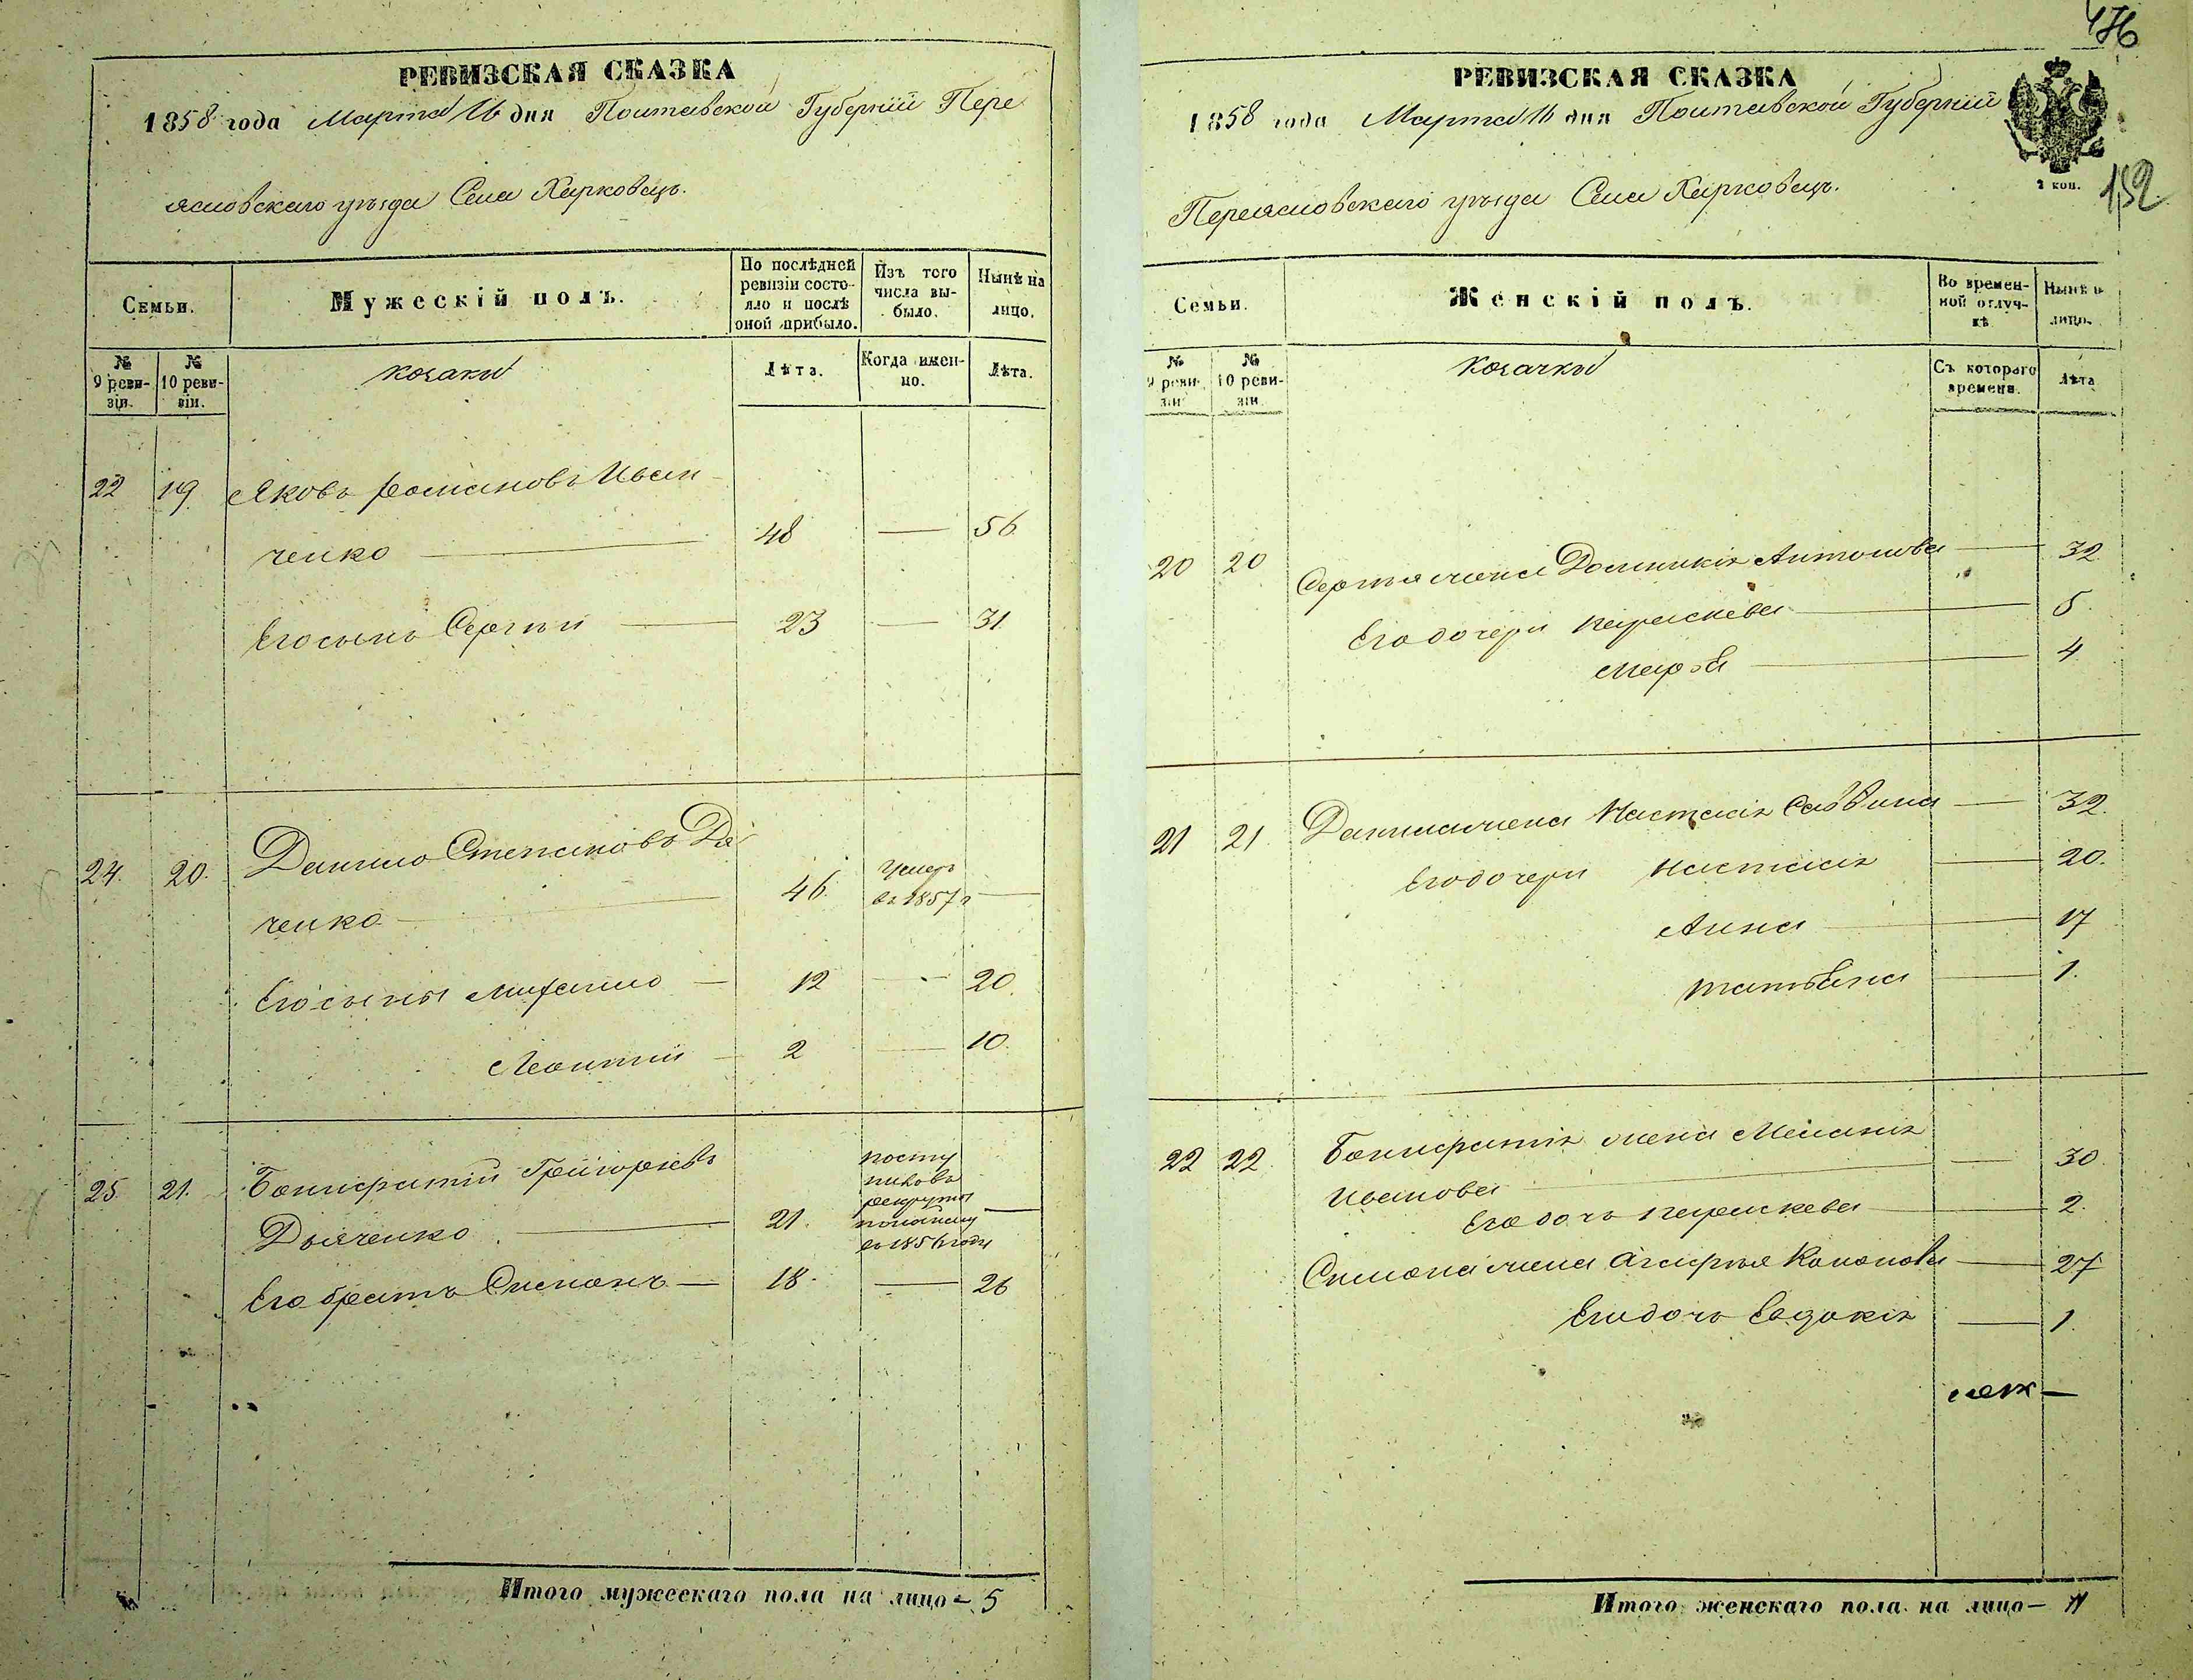 РЕВИЗСКАЯ СКАЗКА
1858 года Марта 16 дня Полтавской Губерніи Пере
яславскаго уѣзда Села Харковецъ.
Семьи.
Мужескій полъ.
По послѣдней ревизіи состояло и послѣ оной прибыло.
Изъ того числа выбыло.
Нынѣ на лицо.
№ 9 ревизіи.
№ 10 ревизіи.
козаки
Лѣта.
Когда именно.
Лѣта.
22 19 Яковъ Романовъ Иван
ченко 48 — 56
Его сынъ Сергѣй 23 — 31
24. 20. Данило Степановъ Дя
ченко 46. умеръ въ 1857 г —
Его сыны Михайло — 12 — 20.
Леонтій — 2 — 10.
25 21. Бонифатій Григорьевъ
Дьяченко 21. посту
пиловъ
рекруты
въ 1856 году —
Его братъ Симонъ — 18. — 26
Итого мужескаго пола на лицо — 5
176
РЕВИЗСКАЯ СКАЗКА
1858 года Марта 16 дня Полтавской Губерніи
2 коп.
152
Переяславскаго уѣзда Села Харковецъ.
Семьи.
Женскій полъ.
Во временной отлучкѣ
Нынѣ на лицо.
№ 9 ревизіи
№ 10 ревизіи
козачки
Съ котораго времени.
Лѣта
20 20 Сергѣя жена Домникія Антонова — 32.
Его дочери Параскева — 5.
Марфа — 4
21 21. Данила жена Настасія Саввина — 32.
Его дочери Настасія — 20.
Анна — 17
Татьяна — 1.
22 22. Бонифатія жена Меланія
Иванова — 30.
Его дочь Параскева — 2.
Симона жена Агафья Кононова — 27
Его дочь Евдокія — 1.
Итого женскаго пола на лицо — 11